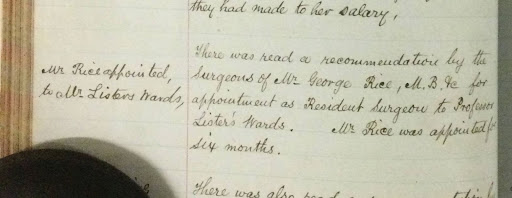 they had made to her salary,
Mr Rice appointed,
to Mr Listers Wards,
There was read a recommendation by the
Surgeons of Mr George Rice, M.B. &c for
appointment as Resident Surgeon to Professor
Lister's Wards. Mr Rice was appointed for
six months.
There was also read